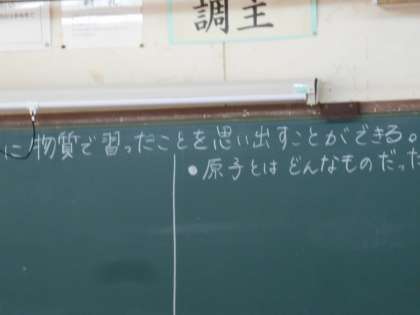 調主
に物質で習ったことを思い出すことができる。
•原子とはどんなものだった